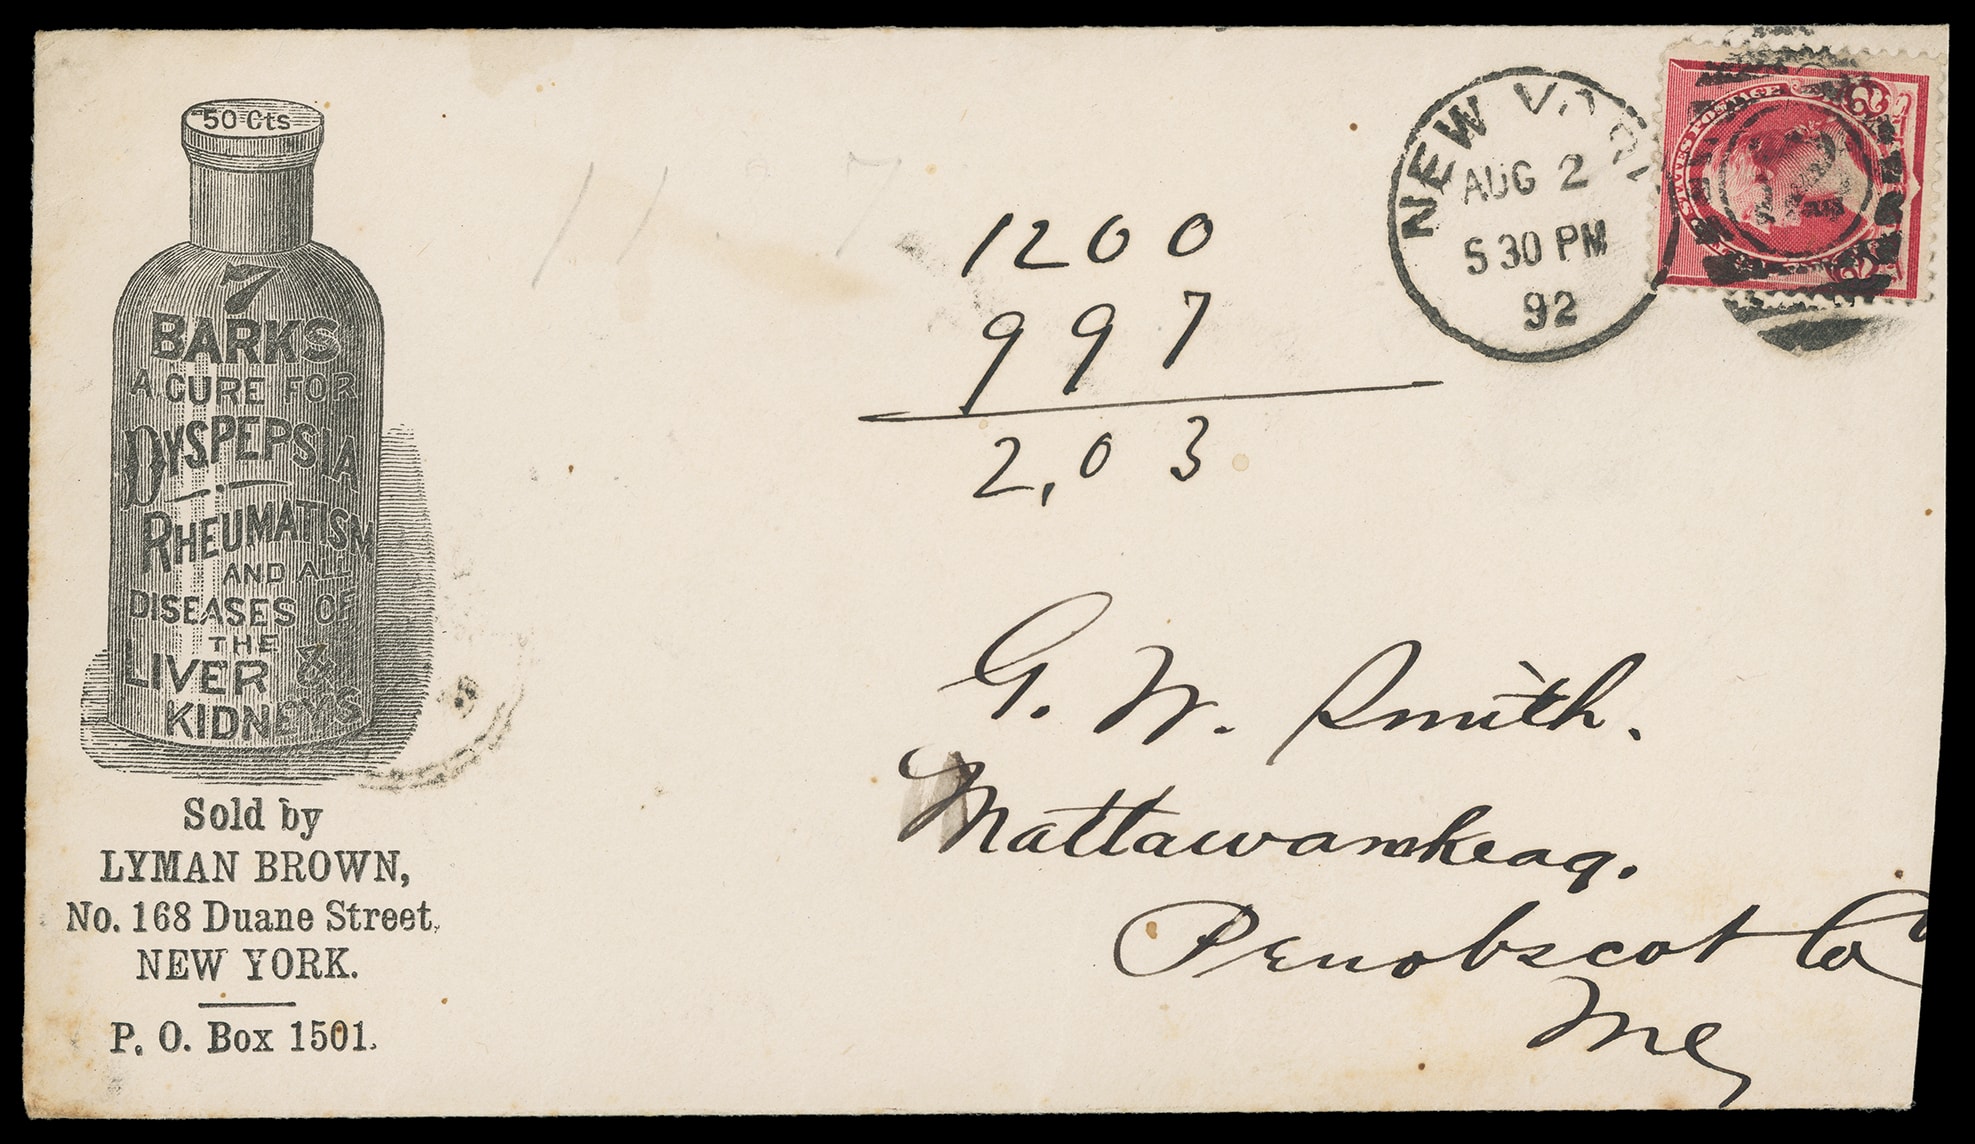 50 Cts
7
BARKS
A CURE FOR
DYSPEPSIA
RHEUMATISM
AND ALL
DISEASES OF
THE
LIVER &
KIDNEYS
Sold by
LYMAN BROWN,
No. 168 Duane Street,
NEW YORK.
P. O. Box 1501.
11 7
1200
997
2,03
NEW YORK
AUG 2
5 30 PM
92
POSTAGE
2 2
G. W. Smith.
Mattawamkeag.
Penobscot Co
Me